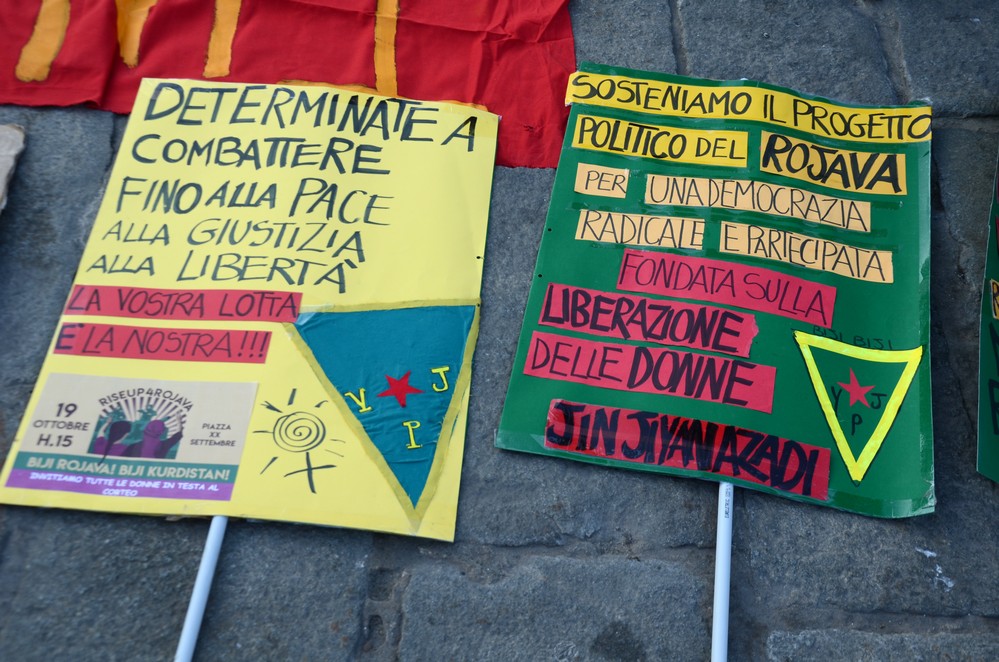 DETERMINATE A
COMBATTERE
FINO ALLA PACE
ALLA GIUSTIZIA
ALLA LIBERTÀ
LA VOSTRA LOTTA
È LA NOSTRA!!!
19
OTTOBRE
H.15
RISEUP4ROJAVA
PIAZZA
XX
SETTEMBRE
BIJI ROJAVA! BIJI KURDISTAN!
INVITIAMO TUTTE LE DONNE IN TESTA AL
CORTEO
Y J
P
SOSTENIAMO IL PROGETTO
POLITICO DEL ROJAVA
PER UNA DEMOCRAZIA
RADICALE E PARTECIPATA
FONDATA SULLA
LIBERAZIONE
DELLE DONNE
JIN JIYAN AZADI
BIJI BIJI
Y J
P